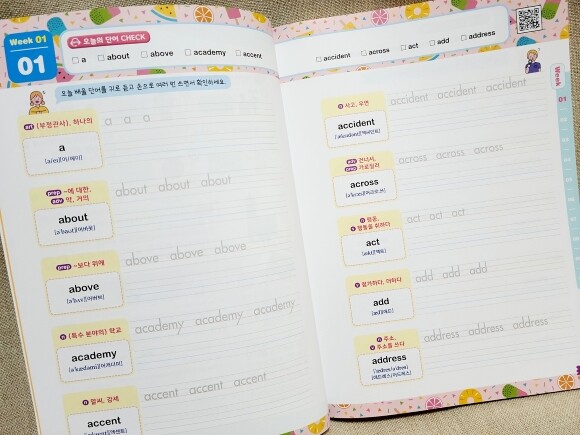 Week 01
01
오늘의 단어 CHECK
a about above academy accent
오늘 배울 단어를 귀로 듣고 손으로 여러 번 쓰면서 확인하세요.
art (부정관사), 하나의
a
a a a
prep ~에 대한,
adv 약, 거의
about
[əˈbaut][어바웃]
about about about
prep ~보다 위에
above
[əˈbʌv][어버브]
above above above
n (특수 분야의) 학교
academy
[əˈkædəmi][어캐더미]
academy academy academy
n 말씨, 강세
accent
accent accent accent
accident across act add address
Week
01
n 사고, 우연
accident
accident accident accident
adv 건너서,
prep 가로질러
across
across across across
n 행동,
v 행동을 취하다
act
[ækt][액트]
act act act
v 첨가하다, 더하다
add
[æd][애드]
add add add
n 주소,
v 주소를 쓰다
address
address address address